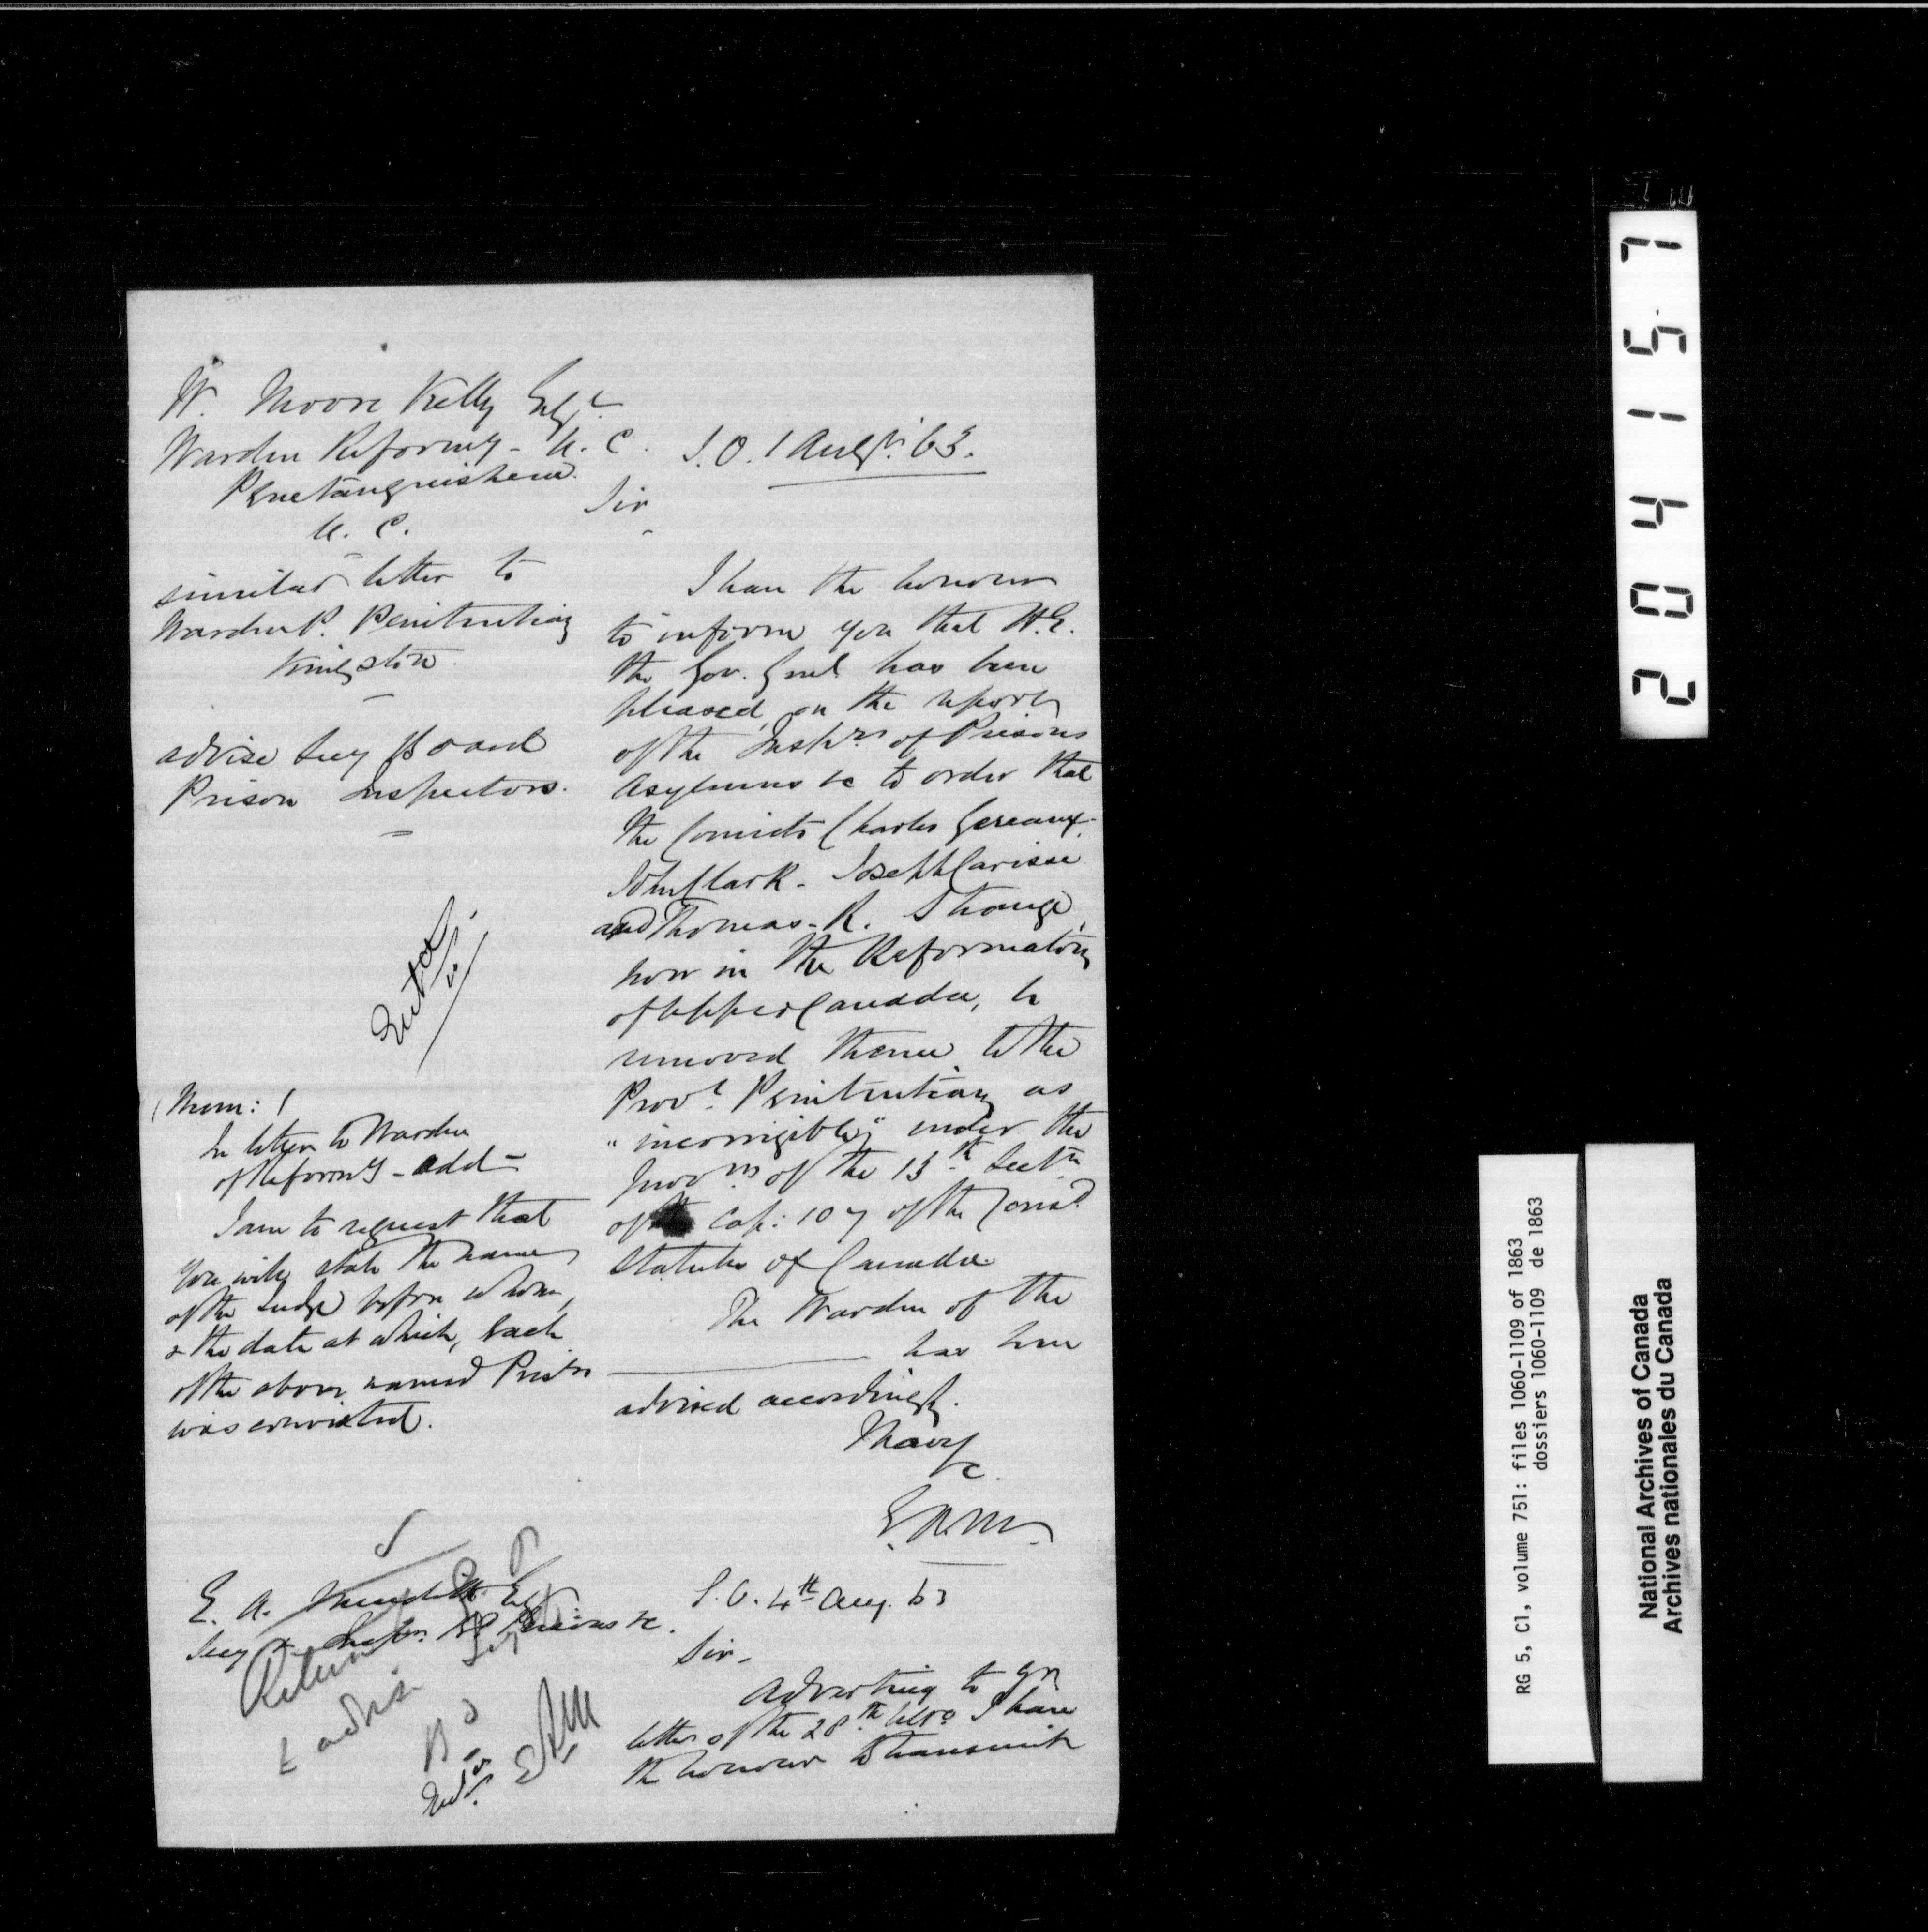 W. Moore Kelly Esqr.
Warden Reformy - U. C.
Penetanguishene.
U. C.
similar letter to
Warden P. Penitentiary
Kingston.
advise Secy Board
Prison Inspectors.
Entd.
(Mem: /
In letter to Warden
of Reformy - add -
I am to request that
you will state the name
of the Judge before whom,
& the date at which, each
of the above named Prisrs
was convicted.
S.O. 1 Augst. 63.
Sir
I have the honour
to inform you that H.E.
the Gov. Genl has been
pleased, on the report
of the Insprs of Prisons
Asylums &c to order that
the Convicts Charles Gereaux.
John Clark. Joseph Carisse
and Thomas. R. Strange,
now in the Reformatory
of Upper Canada, be
removed thence to the
Provl. Penitentiary as
"incorrigible" under the
provns of the 13th Sectn
of Cap: 107 of the Consd
Statutes of Canada.
The Warden of the
has been
advised accordingly.
I have
&c.
E.A.M.
E. A. Meredith Esq
Secy Inspn of Prisons &c.
Return
& advise
EAM
S.O. 4th Aug. 63
Sir -
Adverting to yr
letter of the 28th ulto I have
the honour to transmit
204157
RG 5, C1, volume 751: files 1060-1109 of 1863
dossiers 1060-1109 de 1863
National Archives of Canada
Archives nationales du Canada